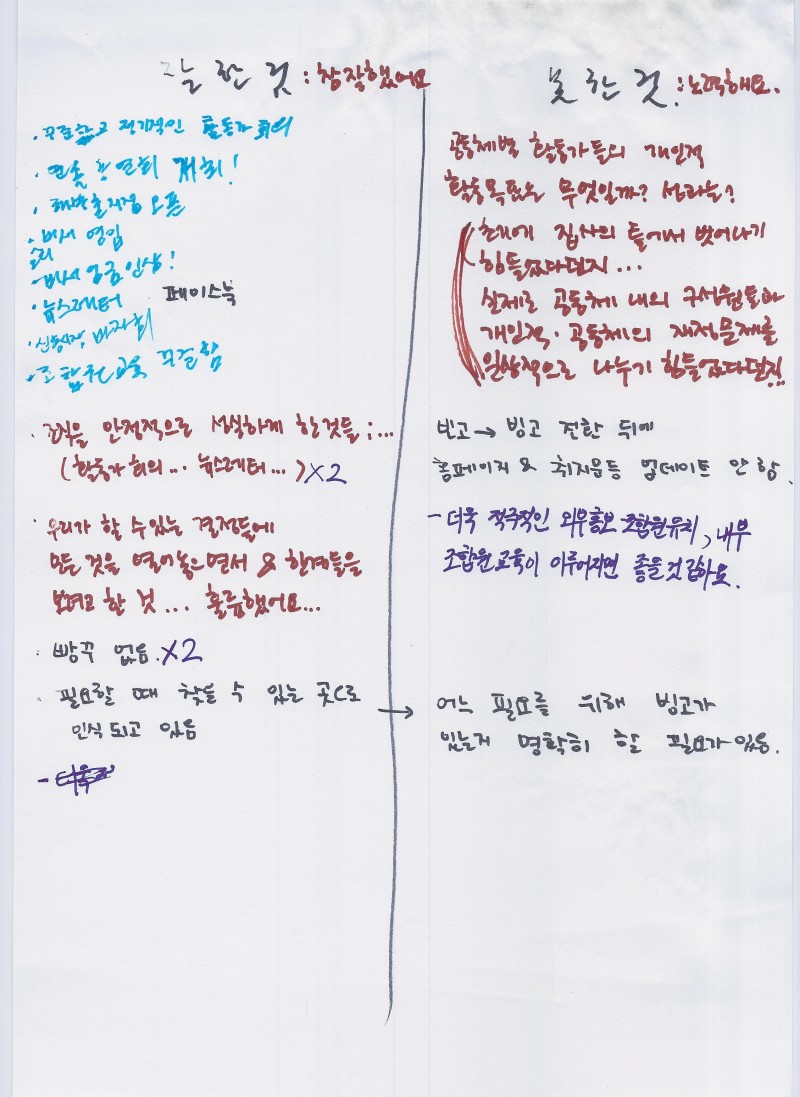 잘 한 것 : 참 잘했어요
· 꾸준하고 정기적인 활동가 회의
· 연솔 강연회 개최!
· 해방촌지점 오픈
· 비서 영입
· 뉴스레터 페이스북
바자회
· 조합원교육 꾸렸함
· 조직을 안정적으로 성실하게 한것들 : ...
(활동가 회의 ... 뉴스레터 ...) X2
· 우리가 할 수 있는 결정들에
모든 것을 열어놓으면서 & 한계들을
보려고 한 것 ... 훌륭했어요...
· 빵꾸 없음. X2
· 필요할 때 찾을 수 있는 곳으로
인식 되고 있음
못 한 것 : 노력해요.
공동체별 활동가들의 개인적
활동목표는 무엇일까? 성과는?
초기에 집사의 틀에서 벗어나기
힘들었다던지 ...
실제로 공동체 내의 구성원들과
개인적 · 공동체의 재정문제를
일상적으로 나누기 힘들었다던지!!
빈고 → 빙고 전환 뒤에
홈페이지 & 취지문등 업데이트 안 함.
- 더욱 적극적인 외부홍보 조합원유치, 내부
조합원교육이 이루어지면 좋을것 같아요.
→ 어느 필요를 위해 빙고가
있는지 명확히 할 필요가 있음.